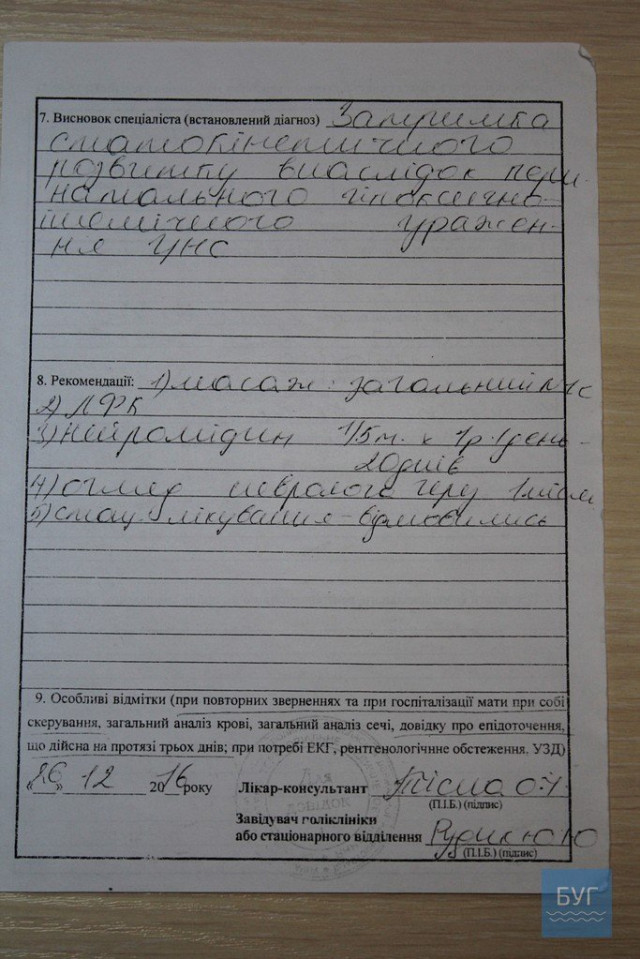 7. Висновок спеціаліста (встановлений діагноз) Затримка
статокінетичного
розвитку внаслідок пери-
натального гіпоксично-
ішемічного уражен-
ня ЦНС
8. Рекомендації: 1) масаж: загальний №
2) ЛФК
3) нейромідин 1/5 т. х 1р. 1 день -
20 днів
4) огляд невролога через 1 місяць
5) стац. лікування - відмовились
9. Особливі відмітки (при повторних зверненнях та при госпіталізації мати при собі
скерування, загальний аналіз крові, загальний аналіз сечі, довідку про епідоточення,
що дійсна на протязі трьох днів; при потребі ЕКГ, рентгенологічнне обстеження, УЗД)
«26» 12 2016 року Лікар-консультант
(П.І.Б.) (підпис)
Завідувач голіклініки
або стаціонарного відділення Рудик Ю Ю
(П.І.Б.) (підпис)
Для
довідок
БУГ